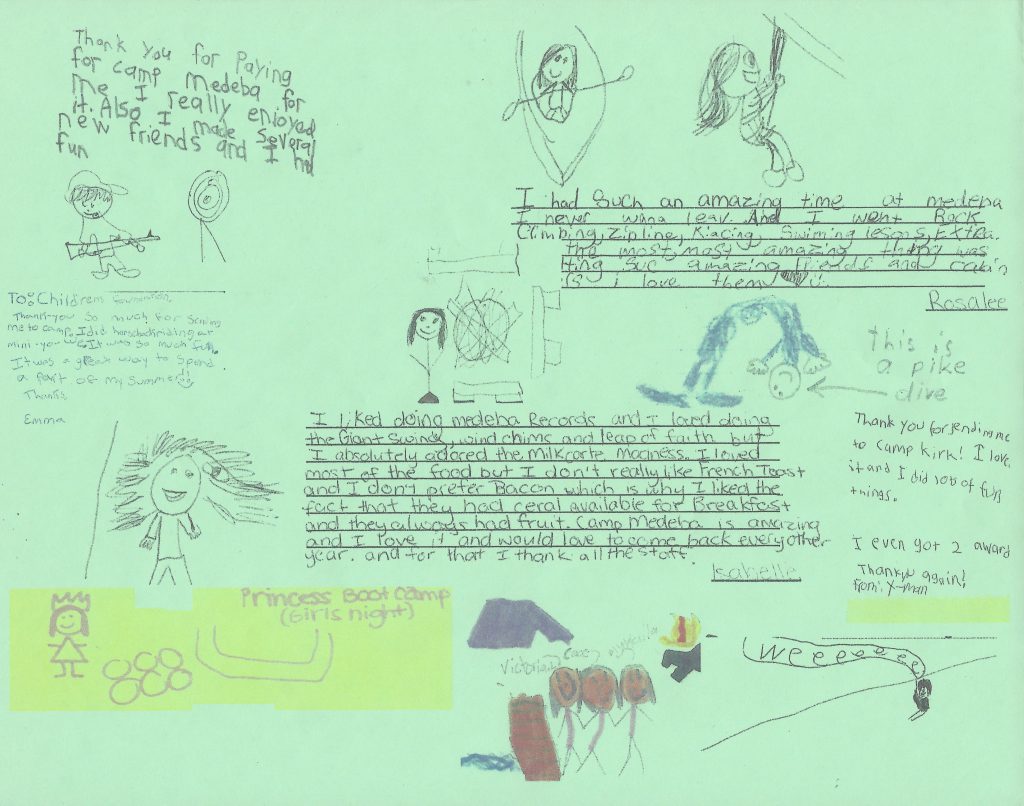 Thank you for Paying
for camp Medeba for
me I really enjoyed
it. Also I made several
new friends and I had
fun
I had such an amazing time at medeba
I never wana leav. And I went Rock
Climbing, Zipline, Kiacing, Swiming lesons, Extra.
the most, most amazing thing was
amazing and cabin
i love them
Rosalee
To: Children Foundation,
Thank-you so much for sending
me to camp, I did horsebackriding at
mini-you We It was so much fun.
It was a great way to spend
a part of my summer!
Thanks
Emma
this is
a pike
dive
I liked doing medeba Records and I loved doing
the Giant Swing, wind chims and leap of faith but
I absolutely adored the Milkcarte Maciness. I loved
most of the food but I don't really like French Toast
and I don't prefer Bacon which is why I liked the
fact that they had ceral available for Breakfast
and they always had fruit. Camp Medeba is amazing
and I love it and would love to come back every other
year. and for that I thank all the stoff.
Isabelle
Thank you for sending me
to Camp Kirk! I love
it and I did lots of fun
things.
I even got 2 award
Thank you again!
from: X-man
Princess Boot Camp
(Girls night)
Victoria
weeeeeee